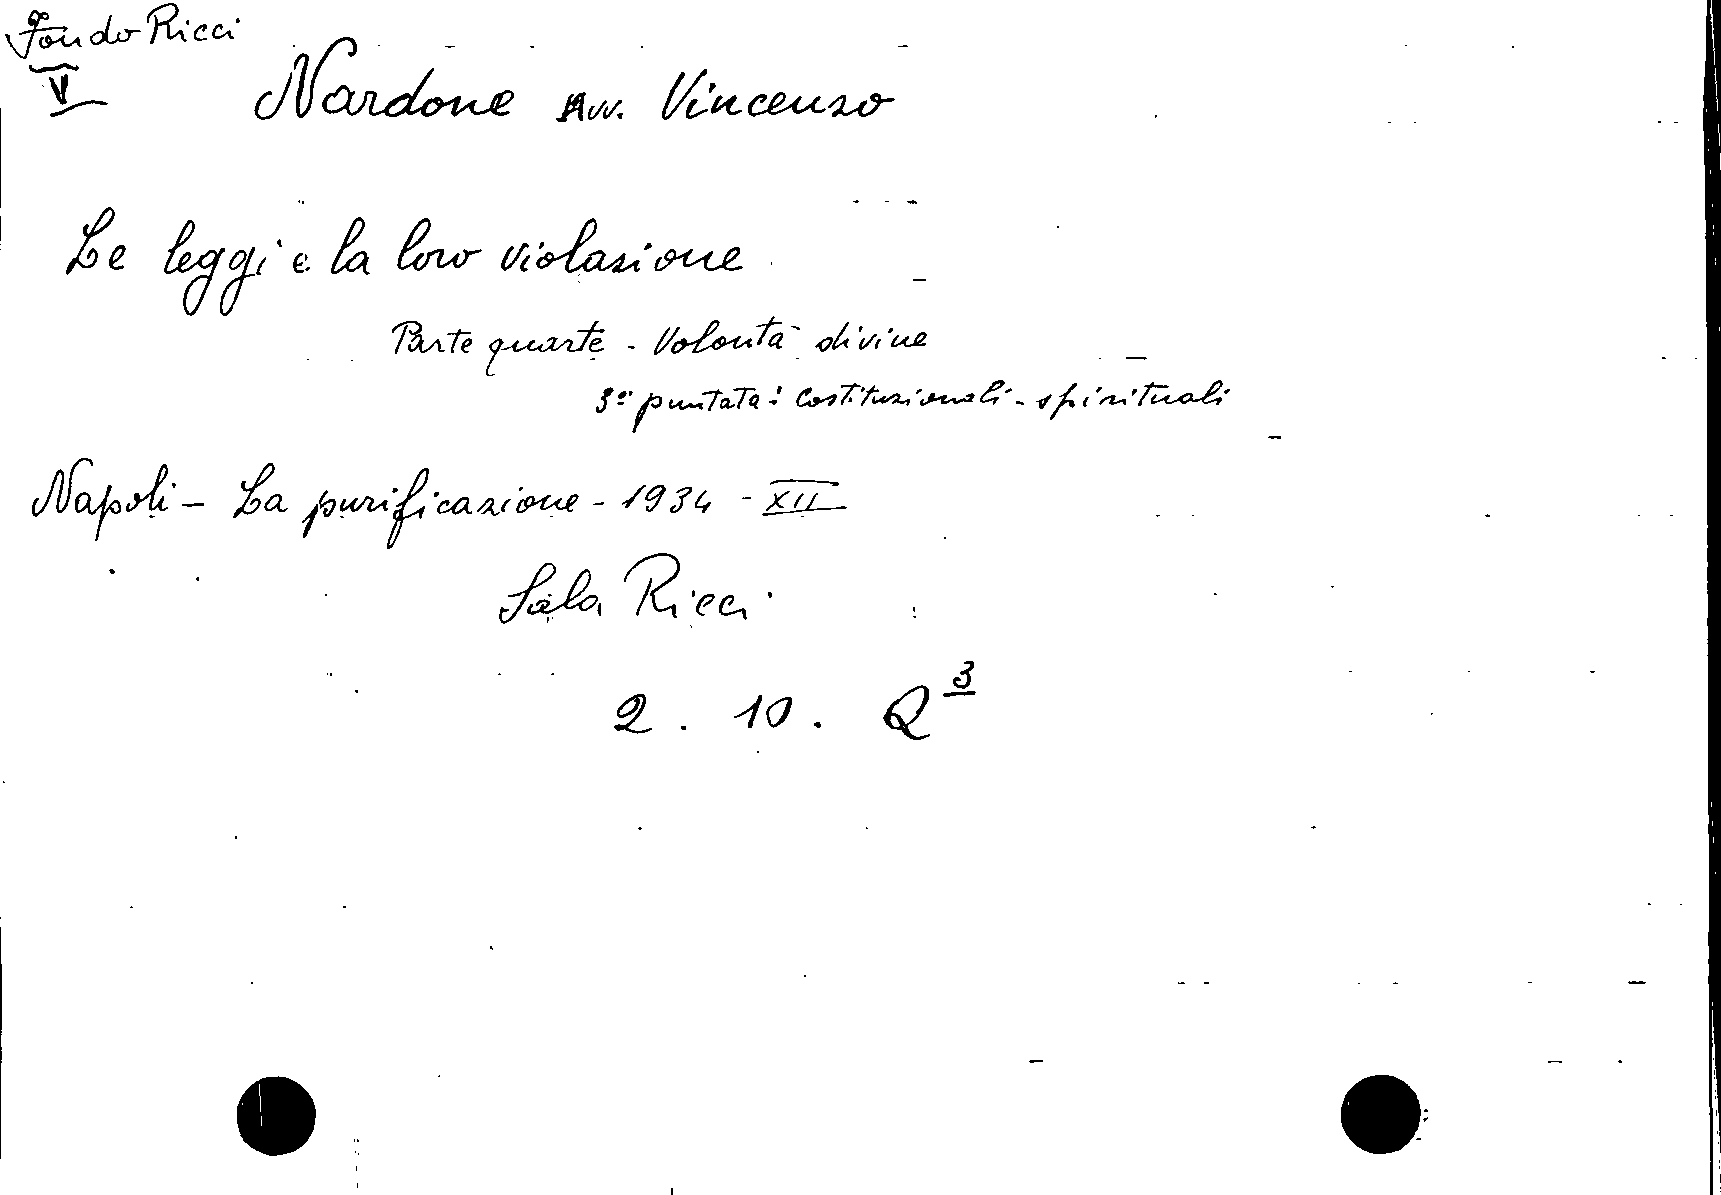 Fondo Ricci
V
Nardone Avv. Vincenzo
Le leggi e la loro violazione
Parte quarta - Volontà divina
3a puntata: Costituzionali - spirituali
Napoli - La purificazione - 1934 - XII
Sala Ricci
2. 10. Q 3